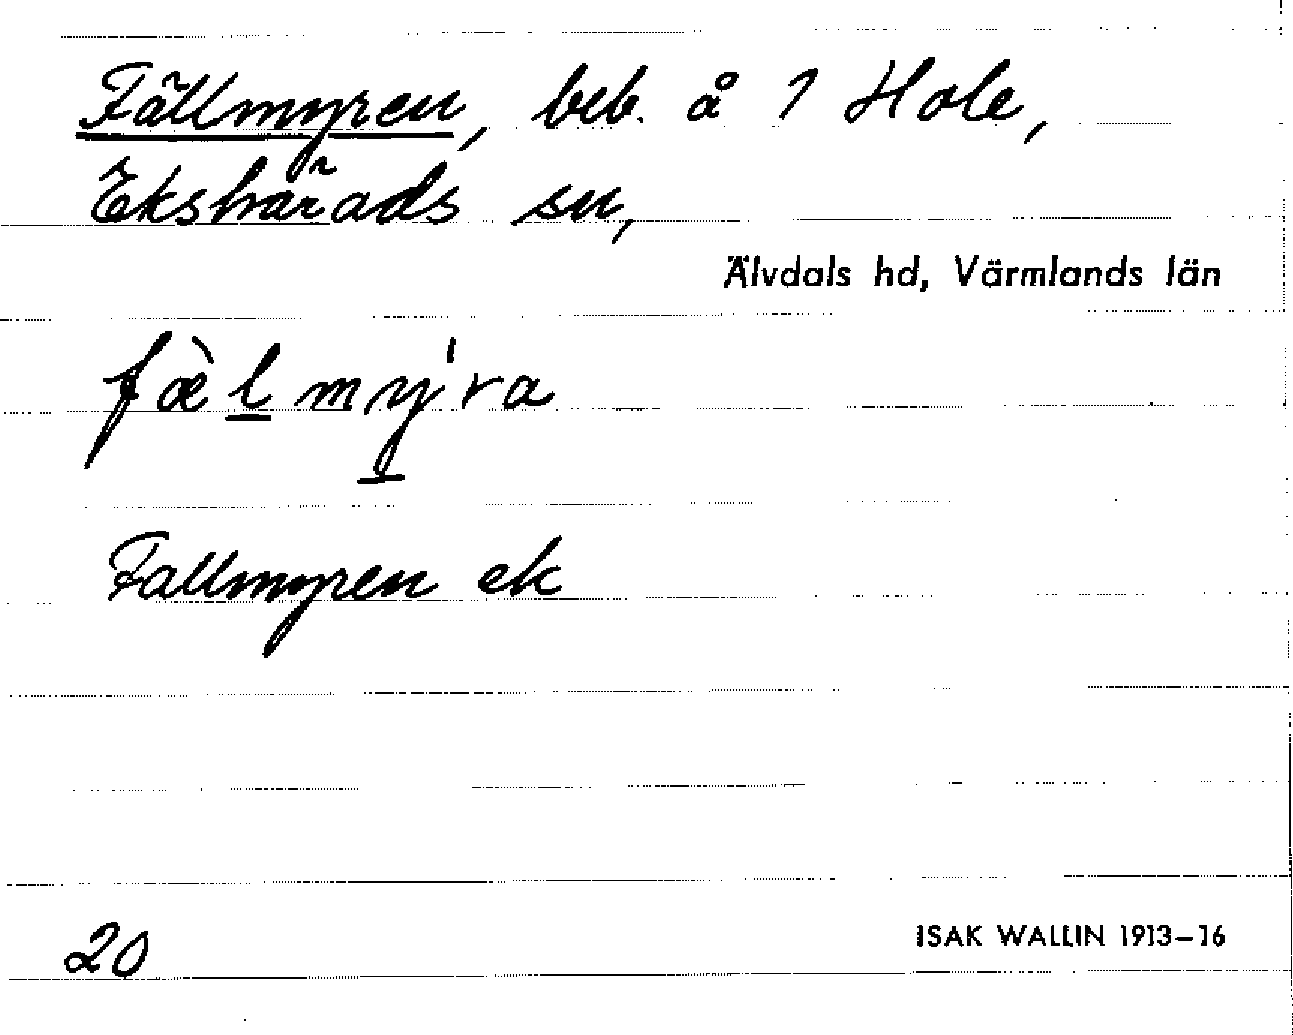 Fällmyren, beb. å 1 Hole,
Ekshärads sn,
Älvdals hd, Värmlands län
fæ̀lmy'ra
Fallmyren ek
20
ISAK WALLIN 1913–16